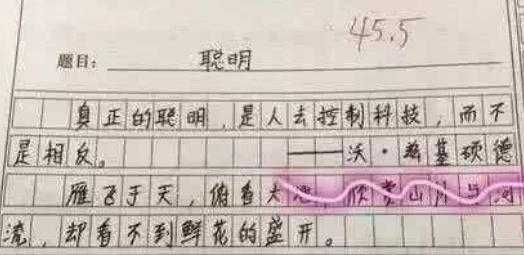 45.5
题目: 聪明
真正的聪明，是人去控制科技，而不
是相反。 ——沃·兹基硕德
雁飞于天，俯看大地，欣赏山川与河
流，却看不到鲜花的盛开。